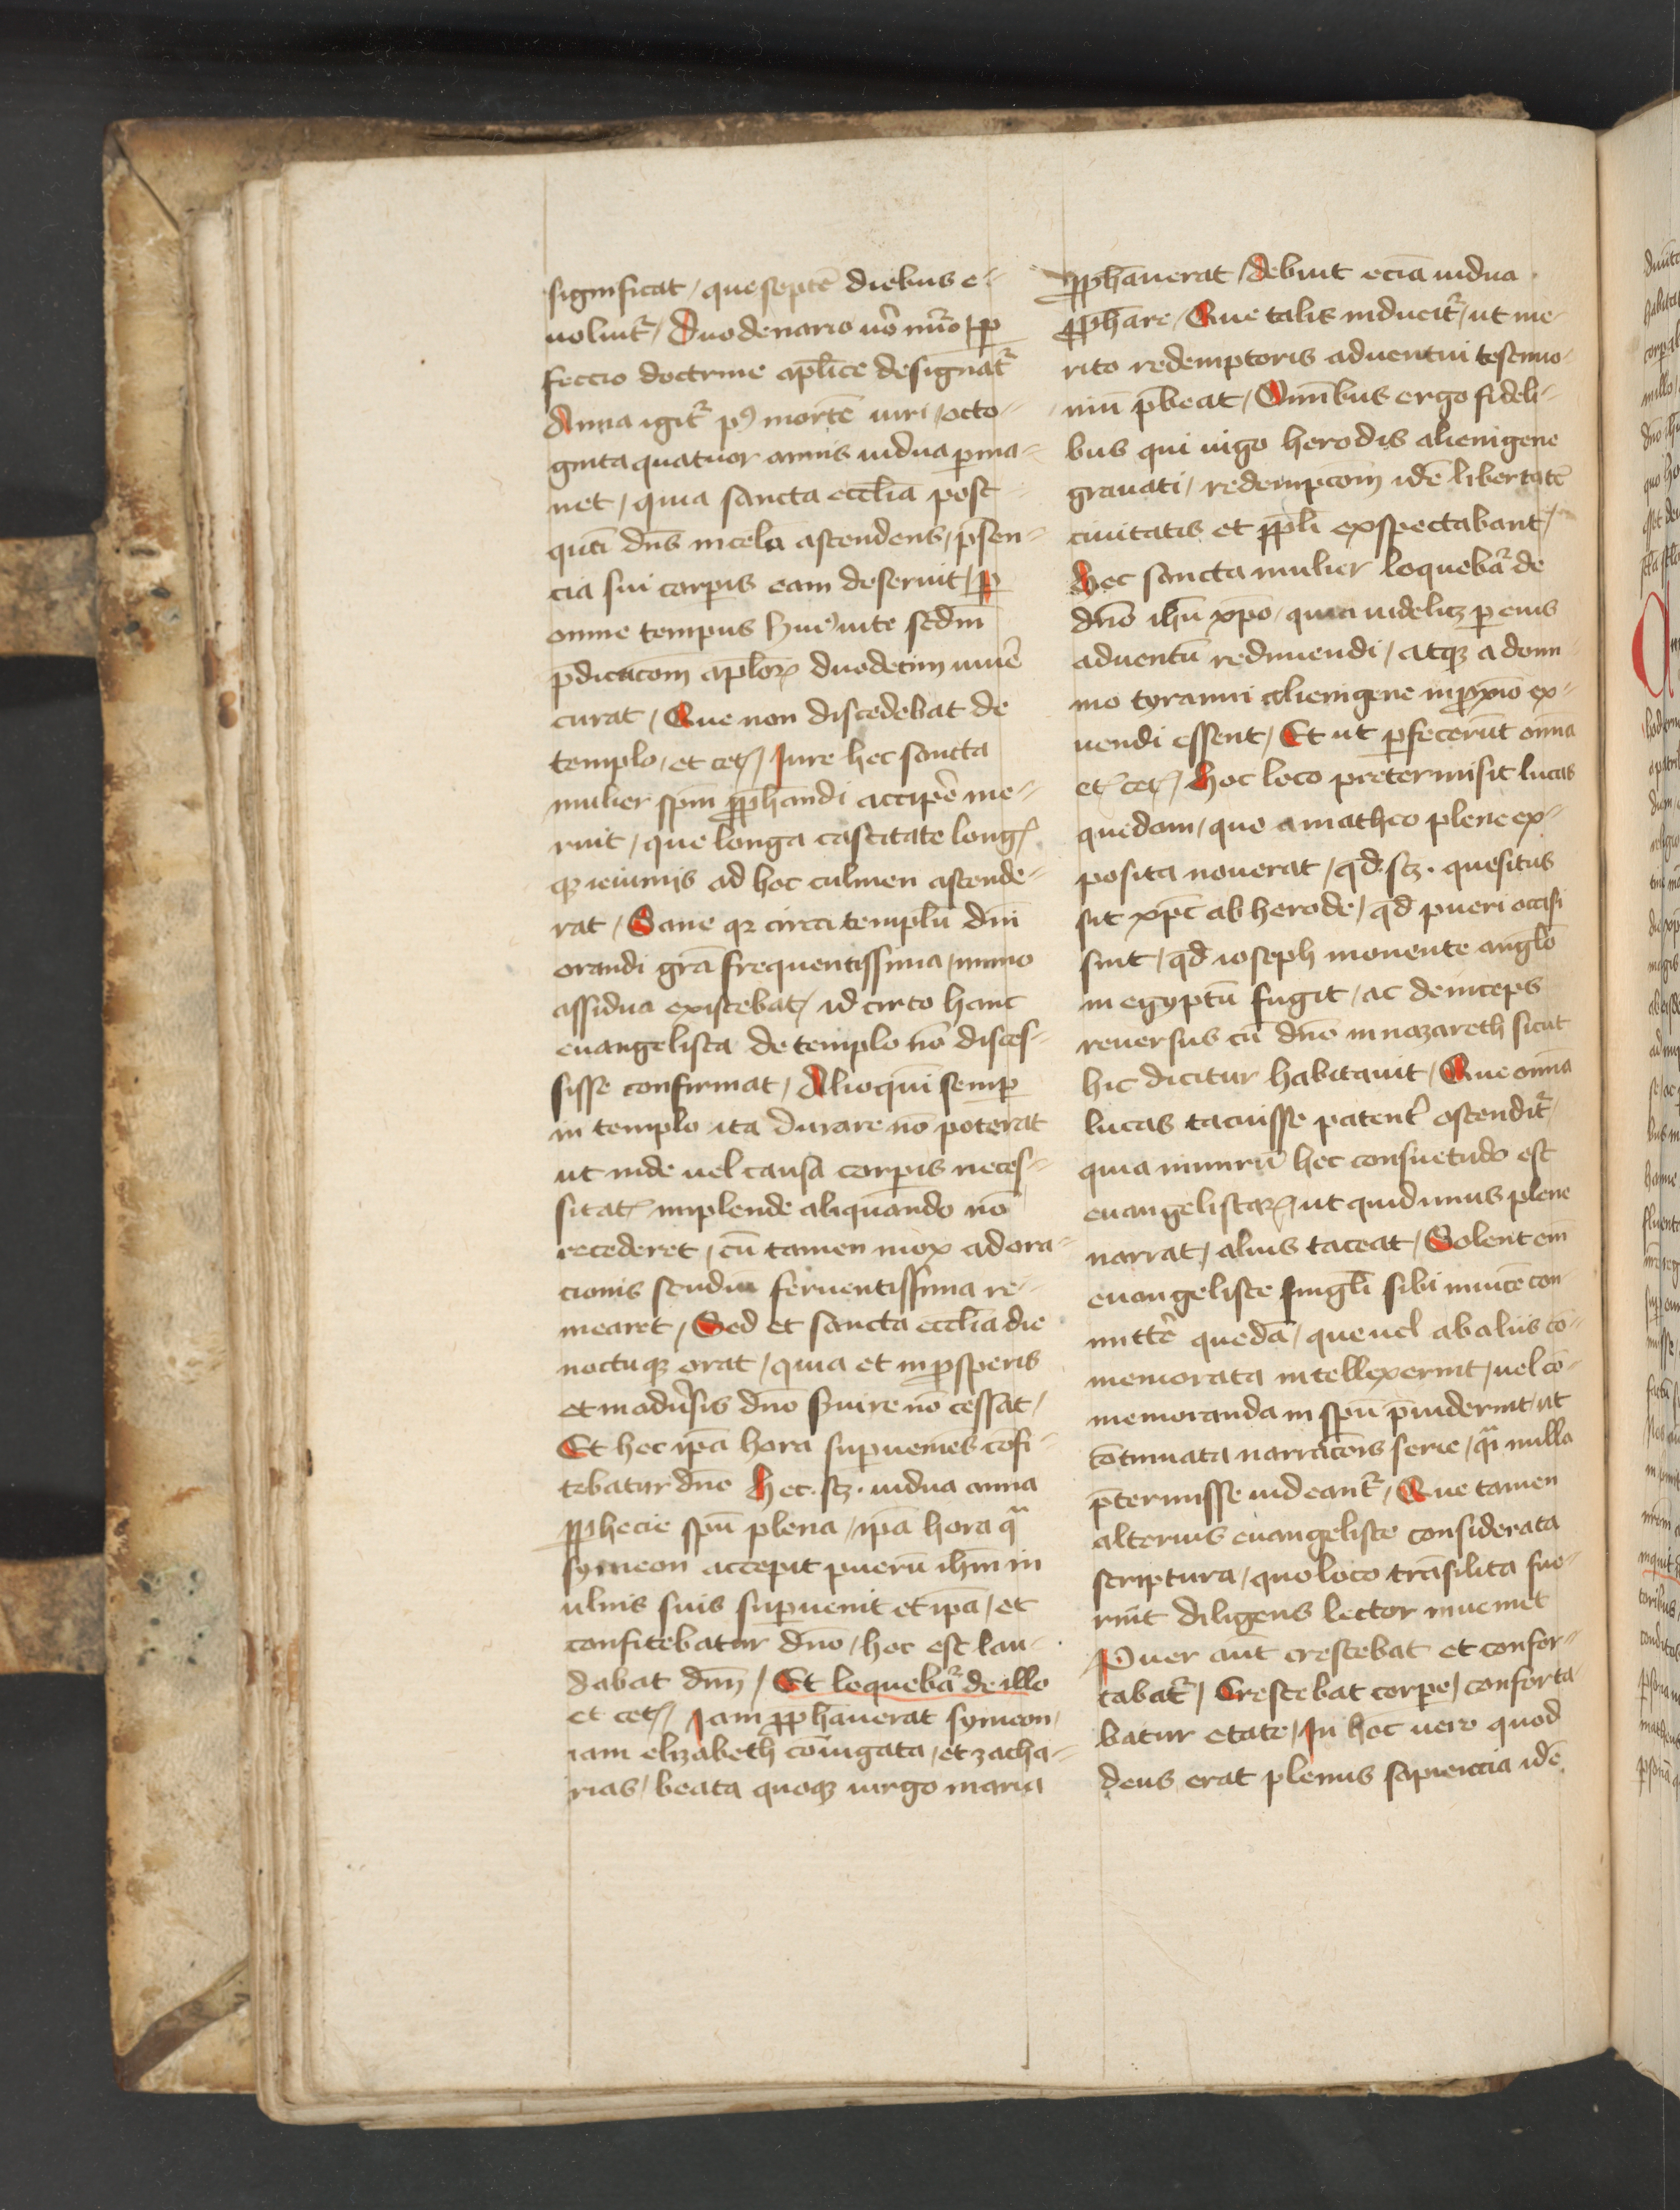 significat / que septē diebus e-
uoluit᷑ / Duodenario u̾o nūo / ꝑ
feccio doctrine aplīce designat᷑
Anna igit᷑ pꝰ mortē uiri / octo-
ginta quatuor annis uidua ꝑma-
net / quia sancta eccl̄ia post
qm̄ dn̄s in celū ascendens / p̄sen-
cia sui corꝑis eam deseruit / ꝑ
omne tempus huiꝰ uite sedm̄
p̄dicacōm apl̄oꝝ duodecim uiuē
curat / Que non discedebat de
templo / et cetꝭ / Jure hec sancta
mulier spm̄ ꝓphandi accipe̾ me-
ruit / que longa castitate longꝭ
qꝫ ieiunijs ad hoc culmen ascende-
rat / Sane qꝛ circa templū dn̄i
orandi grā frequentissima / immo
assidua existebat / id circo hanc
euangelista de templo nō disces-
sisse confirmat / Alioquī semꝑ
in templo ita durare nō poterat
ut inde uel causa corꝑis neces-
sitatꝭ implende aliquando nō
recederet / cū tamen mox ad ora-
cionis studia feruentissima re-
mearet / Sed et sancta eccl̄ia die
noctuqꝫ orat / quia et in ꝓsperis
et in adu̾sis dn̄o s̾uire nō cessat /
Et hec ip̄a hora suꝑueniēs cōfi-
tebatur dn̄o Hec . sꝫ . uidua anna
ꝓphecie spū plena / ip̄a hora qᵃ
symeon accepit puerū ihm̄ in
ulnis suis suꝑuenit et ip̄a / et
confitebatur dn̄o / hoc est lau-
dabat dn̄m / Et loqueba᷑ de illo
et cetꝭ Jam ꝓphāuerat symeon /
iam elizabeth cōiugata / et zacha-
rias / beata quoqꝫ uirgo maria
ꝓphāuerat / debuit eciā uidua
ꝓphāre / Que talis inducit᷑ / ut me-
rito redemptoris aduentui testimo-
niū p̄beat / Om̄ibus ergo fideli-
bus qui iugo herodis alienigene
grauati / redempcōm idē libertatē
ciuitatis et ppl̄i exspectabant /
Hec sancta mulier loqueba᷑ de
dn̄o ihū xp̄o / quia uidelicꝫ ꝑ eius
aduentū redimendi / atqꝫ a domi-
nio tyranni alienigene in ꝓxīo ex-
uendi essent / Et ut ꝑfecerūt om̄ia
et cetꝭ / Hoc loco pretermisit lucas
quedam / que a matheo plene ex-
posita nouerat / qd̄ . sꝫ . quesitus
sit xp̄c ab herode / qd̄ pueri occisi
sint / qd̄ ioseph monente angl̄o
in egyptū fugit / ac deinceps
reuersus cū dn̄o in nazareth sicut
hic dicitur habitauit / Que om̄ia
lucas tacuisse patent̾ ostendit᷑ /
quia nimirū hec consuetudo est
euangelistaꝝ / ut quid unus plene
narrat / alius taceat / Solent em̄
euangeliste singl̄i sibi inuicē con-
mitte̾ quedā / que uel ab aliis cō-
memorata intellexerint / uel cō-
memoranda in spū p̄uiderint / ut
cōtinuata narracōis serie / qᵃi nulla
p̄termisse uideant᷑ / Que tamen
alterius euangeliste considerata
scriptura / quo loco trāsilita fue-
rint diligens lector inueniet
Puer aūt crescebat et confor-
tabat᷑ / Crescebat corꝑe / conforta-
batur etate / In hoc uero quod
deus erat plenus sapiencia idē